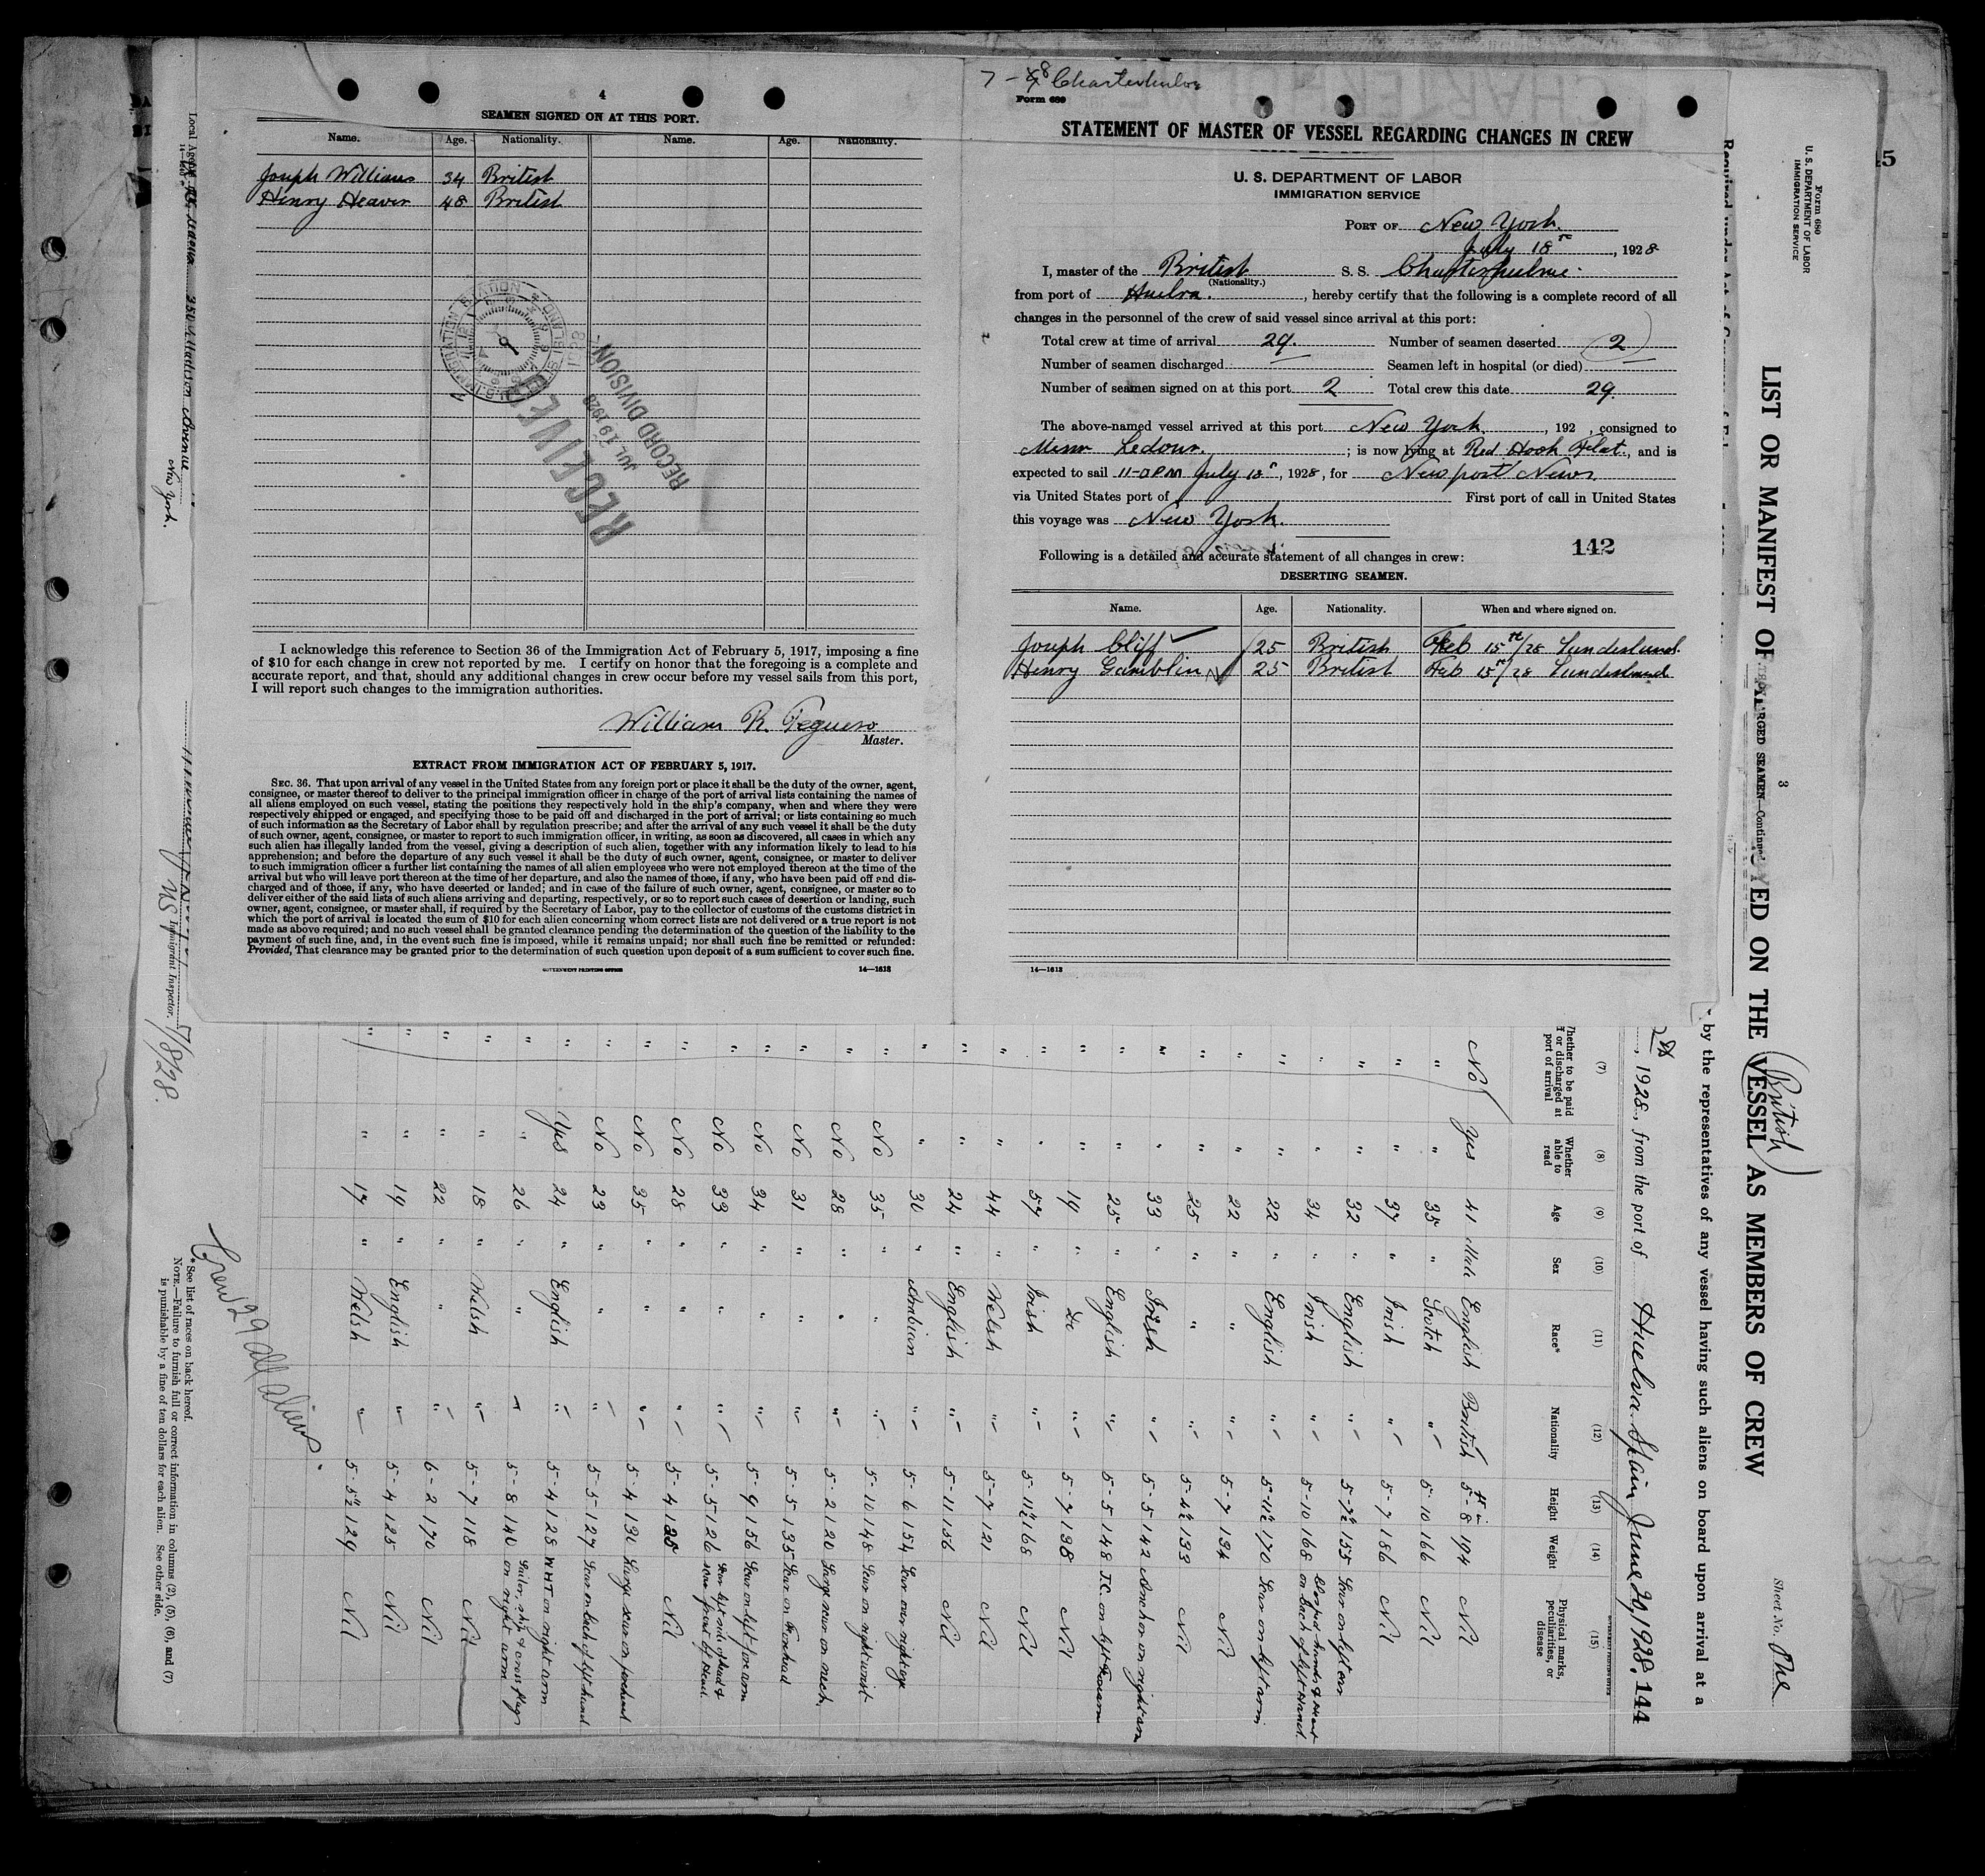 4
SEAMEN SIGNED ON AT THIS PORT.
Name. Age. Nationality. Name. Age. Nationality.
Joseph Williams 34 British
Henry Heaver 48 British
RECEIVED
JUL 19 1928
RECORD DIVISION
I acknowledge this reference to Section 36 of the Immigration Act of February 5, 1917, imposing a fine
of $10 for each change in crew not reported by me. I certify on honor that the foregoing is a complete and
accurate report, and that, should any additional changes in crew occur before my vessel sails from this port,
I will report such changes to the immigration authorities.
William R.
Master.
EXTRACT FROM IMMIGRATION ACT OF FEBRUARY 5, 1917.
SEC. 36. That upon arrival of any vessel in the United States from any foreign port or place it shall be the duty of the owner, agent,
consignee, or master thereof to deliver to the principal immigration officer in charge of the port of arrival lists containing the names of
all aliens employed on such vessel, stating the positions they respectively hold in the ship's company, when and where they were
respectively shipped or engaged, and specifying those to be paid off and discharged in the port of arrival; or lists containing so much
of such information as the Secretary of Labor shall by regulation prescribe; and after the arrival of any such vessel it shall be the duty
of such owner, agent, consignee, or master to report to such immigration officer, in writing, as soon as discovered, all cases in which any
such alien has illegally landed from the vessel, giving a description of such alien, together with any information likely to lead to his
apprehension; and before the departure of any such vessel it shall be the duty of such owner, agent, consignee, or master to deliver
to such immigration officer a further list containing the names of all alien employees who were not employed thereon at the time of the
arrival but who will leave port thereon at the time of her departure, and also the names of those, if any, who have been paid off and dis-
charged and of those, if any, who have deserted or landed; and in case of the failure of such owner, agent, consignee, or master so to
deliver either of the said lists of such aliens arriving and departing, respectively, or so to report such cases of desertion or landing, such
owner, agent, consignee, or master shall, if required by the Secretary of Labor, pay to the collector of customs of the customs district in
which the port of arrival is located the sum of $10 for each alien concerning whom correct lists are not delivered or a true report is not
made as above required; and no such vessel shall be granted clearance pending the determination of the question of the liability to the
payment of such fine, and, in the event such fine is imposed, while it remains unpaid; nor shall such fine be remitted or refunded:
Provided, That clearance may be granted prior to the determination of such question upon deposit of a sum sufficient to cover such fine.
GOVERNMENT PRINTING OFFICE 14—1613
Form 680
STATEMENT OF MASTER OF VESSEL REGARDING CHANGES IN CREW
U. S. DEPARTMENT OF LABOR
IMMIGRATION SERVICE
PORT OF New York.
July 18th, 1928
I, master of the British S. S. Charterhulme.
(Nationality.)
from port of Huelva., hereby certify that the following is a complete record of all
changes in the personnel of the crew of said vessel since arrival at this port:
Total crew at time of arrival 29. Number of seamen deserted 2
Number of seamen discharged Seamen left in hospital (or died)
Number of seamen signed on at this port 2 Total crew this date 29.
The above-named vessel arrived at this port New York, 192 , consigned to
; is now lying at Red Hook Flat., and is
expected to sail 11-0 PM July 18th, 1928, for Newport News
via United States port of First port of call in United States
this voyage was New York.
Following is a detailed and accurate statement of all changes in crew:
142
DESERTING SEAMEN.
Name. Age. Nationality. When and where signed on.
Joseph Cliff 25 British Feb 15th/28 Sunderland.
Henry Gamblin 25 British Feb 15th/28 Sunderland
14—1613
Form 680
U. S. DEPARTMENT OF LABOR
IMMIGRATION SERVICE
3
Sheet No. One
LIST OR MANIFEST OF
ED ON THE VESSEL AS MEMBERS OF CREW
(British)
by the representatives of any vessel having such aliens on board upon arrival at a
, 1928, from the port of Huelva Spain June 29, 1928. 144
(7) (8) (9) (10) (11) (12) (13) (14) (15)
Whether able to read Age Sex Race* Nationality Height Weight Physical marks, peculiarities, or disease
No Yes 41 Male English British 5-8 194 Nil
" " 35 " Scotch " 5-10 166 Nil
" " 37 " Irish " 5-7 186 Nil
" " 32 " English " 5-7½ 155 Scar on left ear
" " 34 " Irish " 5-10 168 Clasped hands & Heart on back of left Hand
" " 22 " English " 5-11½ 170 Scar on left arm
" " 22 " " " 5-7 134 Nil
" " 25 " " " 5-4½ 133 Nil
" " 33 " Irish " 5-5 142 Anchor on right arm
" " 25 " English " 5-5 148 J.C. on left Forearm
" " 19 " Do " 5-7 138 Nil
" " 57 " Irish " 5-11½ 168 Nil
" " 44 " Welsh " 5-7 121 Nil
" " 24 " English " 5-11 156 Nil
" " 30 " Arabian " 5-6 154 Scar over right eye
" No 35 " " " 5-10 148 Scar on right wrist
" No 28 " " " 5-2 120 Large scar on neck
" No 31 " " " 5-5 135 Scar on Forehead
" No 34 " " " 5-9 156 Scar on left forearm
" No 33 " " " 5-5 126 Scar left side of head & front of Head
" No 28 " " " 5-4 128 Nil
" No 35 " " " 5-4 130 Large scar on forehead
" No 23 " " " 5-5 127 Scar on back of left hand
" Yes 24 " English " 5-4 128 WHT on right arm
" " 26 " " " 5-8 140 Sailor, ship & cross flags on right arm
" " 18 " Welsh " 5-7 118 Nil
" " 22 " " " 6-2 170 Nil
" " 19 " English " 5-4 125 Nil
" " 17 " Welsh " 5-5½ 129 Nil
Crew 29 all aliens
*See list of races on back hereof.
NOTE.—Failure to furnish full or correct information in columns (2), (5), (6), and (7)
is punishable by a fine of ten dollars for each alien. See other side.
Madison Avenue
New York.
Immigrant Inspector.
7/8/28.